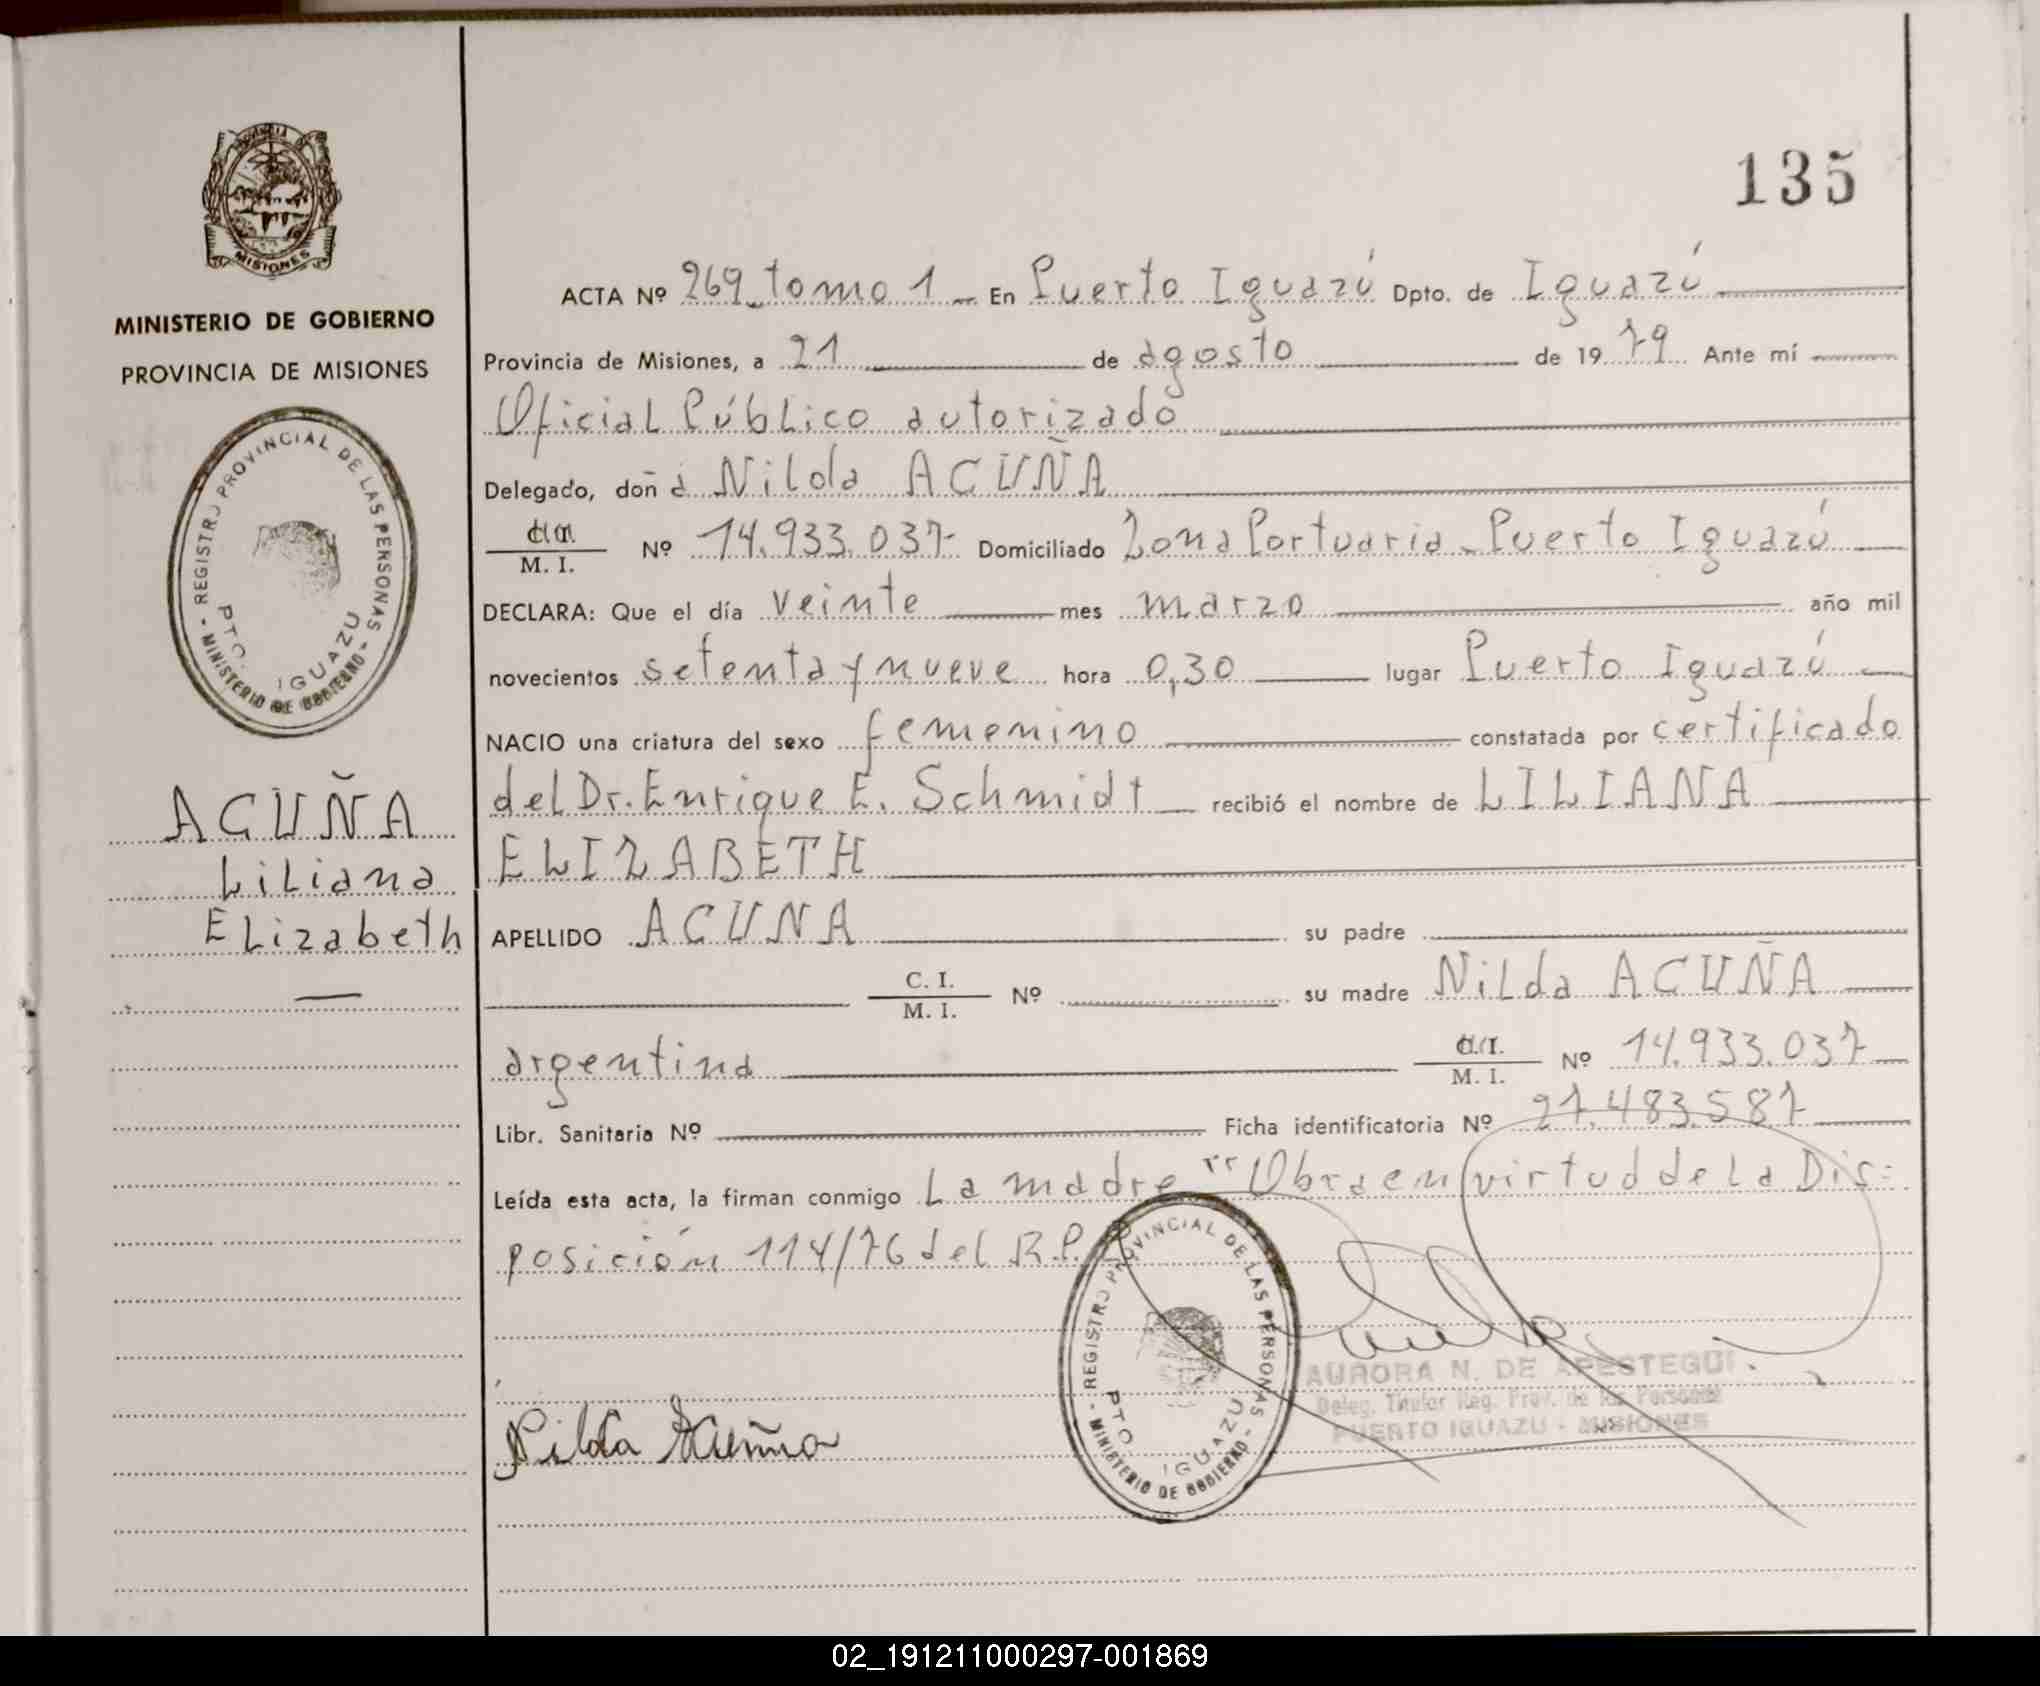 PROVINCIA
MISIONES
MINISTERIO DE GOBIERNO
PROVINCIA DE MISIONES
- REGISTRO PROVINCIAL DE LAS PERSONAS -
MINISTERIO DE GOBIERNO
PTO. IGUAZU
ACUÑA
Liliana
Elizabeth
135
ACTA Nº 269 tomo 1 En Puerto Iguazú Dpto. de Iguazú
Provincia de Misiones, a 21 de agosto de 1979 Ante mí
Oficial Público autorizado
Delegado, doña Nilda ACUÑA
C.I.
M. I. Nº 14.933.037 Domiciliado Zona Portuaria - Puerto Iguazú
DECLARA: Que el día veinte mes marzo año mil
novecientos setenta y nueve hora 0,30 lugar Puerto Iguazú
NACIO una criatura del sexo femenino constatada por certificado
del Dr. Enrique E. Schmidt recibió el nombre de LILIANA
ELIZABETH
APELLIDO ACUNA su padre
C. I.
M. I. Nº su madre Nilda ACUÑA
argentina C.I.
M. I. Nº 14.933.037
Libr. Sanitaria Nº Ficha identificatoria Nº 27.483.587
Leída esta acta, la firman conmigo La madre "Obra en virtud de la Dis=
posición 114/76 del R.P.
- REGISTRO PROVINCIAL DE LAS PERSONAS -
MINISTERIO DE GOBIERNO
PTO. IGUAZU
AURORA N. DE APESTEGUI
Deleg. Titular Reg. Prov. de las Personas
PUERTO IGUAZU - MISIONES
Nilda Acuña
02_191211000297-001869